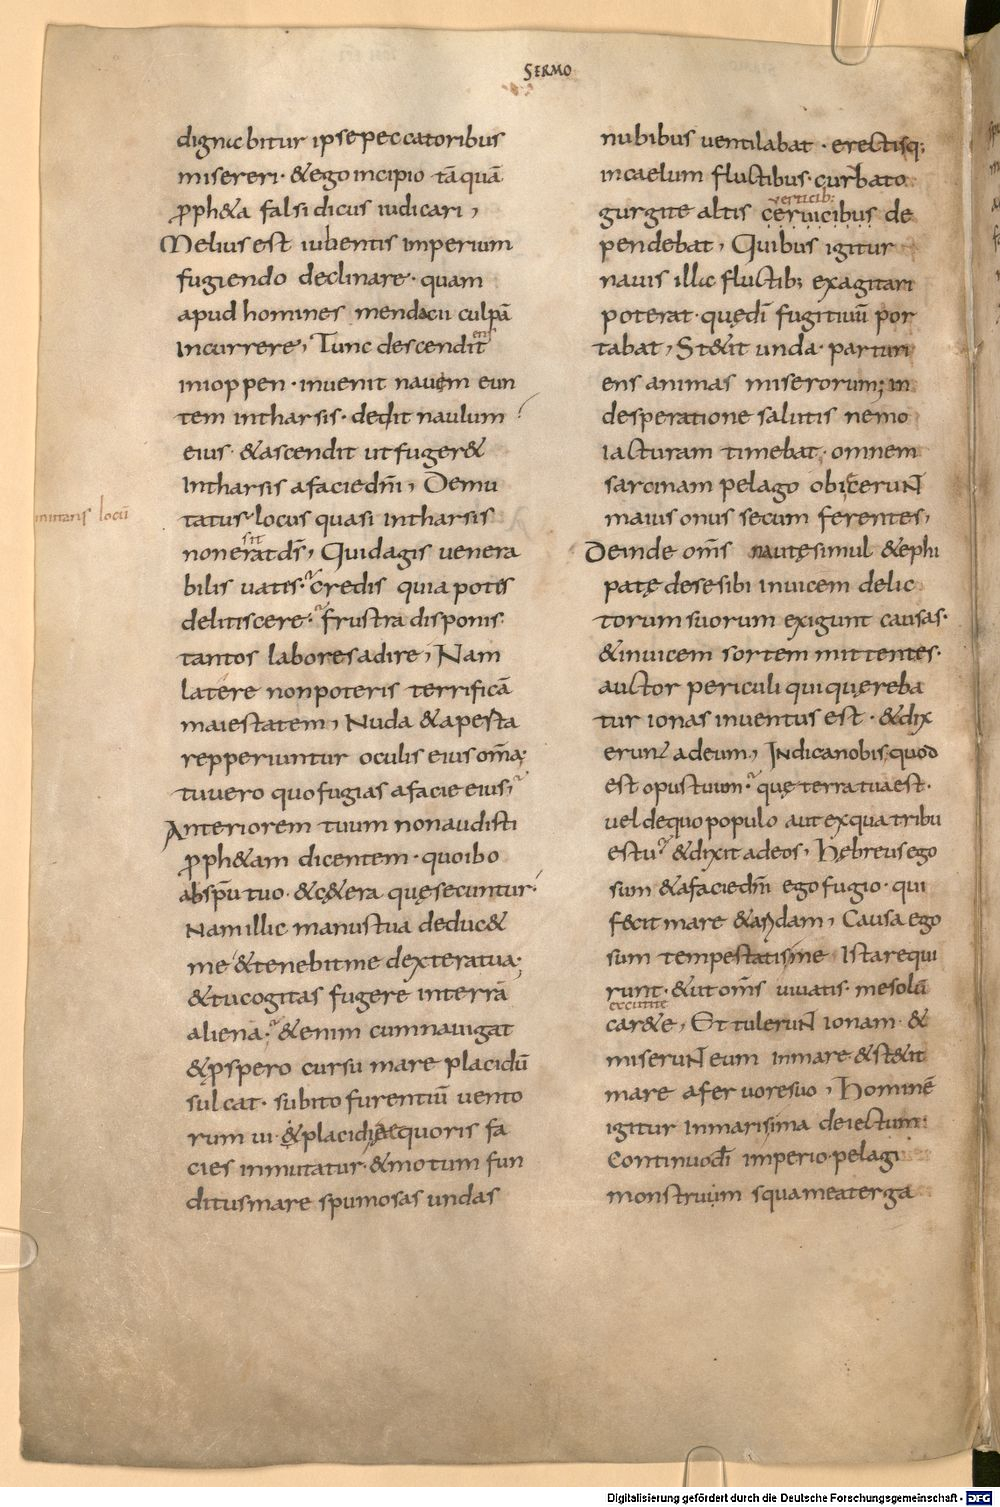 SERMO
dignabitur ipse peccatoribus
misereri· & ego incipio tāquā
ꝓph&a falsidicus iudicari,
Melius est iubentis imperium
fugiendo declinare· quam
apud homines mendacii culpā
incurrere, Tunc descendit
ens
in ioppen· invenit navem eun
tem in tharsis· dedit naulum
eius· & ascendit ut fuger&
In tharsis a facie dn̄i, Demu
mutaris locū
tatus locus quasi in tharsis
sit
non erat ds̄, Quid agis venera
bilis vates· credis quia potes
delitiscere· frustra disponis
tantos labores adire, Nam
latere non poteris terrificā
maiestatem, Nuda & apesta
repperiuntur oculis eius om̄a;
tu vero quo fugias a facie eius,
Anteriorem tuum non audisti
ꝓph&am dicentem· quo ibo
ab spū tuo· & c&era quę secuntur·
Nam illic manus tua deduc&
me & tenebit me dextera tua;
& tu cogitas fugere in terrā
alienā· & enim cum navigat
& ꝓspero cursu mare placidū
sulcat· subito furentiū vento
rum vi· & placidi ęquoris fa
cies inmutatur· & motum fun
ditus mare spumosas undas
nubibus ventilabat· erectisq;
in caelum fluctibus· curbato
verticib;
gurgite altis cervicibus de
pendebat, Quibus igitur
navis illic fluctib; exagitari
poterat· quę dī fugitivū por
tabat, St&it unda· parturi
ens animas miserorum; in
desperatione salutis nemo
iacturam timebat· omnem
sarcinam pelago obiceruN
maius onus secum ferentes,
Deinde om̄s nautę simul & ephi
patę de se sibi invicem delic
torum suorum exigunt causas·
& invicem sortem mittentes·
auctor periculi qui quęreba
tur ionas inventus est· & dix
erunt ad eum, Indica nobis quod
est opus tuum· quę terra tua est·
vel de quo populo aut ex qua tribu
es tu· & dixit ad eos, Hebreus ego
sum & a facie dn̄i ego fugio· qui
fecit mare & aridam, Causa ego
sum tempestatis me Ista requi
runt· & ut om̄s vivatis· me solū
excutite
car&e, Et tuleruN ionam &
miseruN eum in mare & st&it
mare a fervore suo, Hominē
igitur In mari sima deiectum
Continuo dī imperio pelagi
monstruum squamea terga
Digitalisierung gefördert durch die Deutsche Forschungsgemeinschaft - DFG